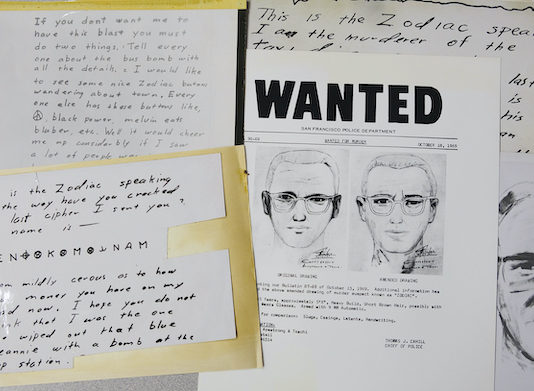 If you dont want me to
have this blast you must
do two things. Tell every
one about the bus bomb with
all the details. I would like
to see some nice Zodiac butons
wandering about town. Every
one else has these buttons like,
black power, melvin eats
bluber, etc. Well it would cheer
me up considerbly if I saw
a lot of people
is the Zodiac speaking
the way have you cracked
last cipher I sent you?
name is —
om mildly cerous as to how
money you have on my
nd now. I hope you do not
ink that I was the one
wiped out that blue
eannie with a bomb at the
p station.
This is the Zodiac spea
I am the murderer of the
last
is
this
WANTED
SAN FRANCISCO POLICE DEPARTMENT
WANTED FOR MURDER
OCTOBER 18, 1969
ORIGINAL DRAWING
AMENDED DRAWING
ding our Bulletin 87-69 of October 13, 1969. Additional information has
the above amended drawing of murder suspect known as "ZODIAC".
years, approximately Heavy Build, Short Brown Hair, possibly with
Glasses. Armed with 9 MM Automatic.
for comparison: Slugs, Casings, Latents, Handwriting.
Armstrong & Toschi
THOMAS J. CAHILL
CHIEF OF POLICE